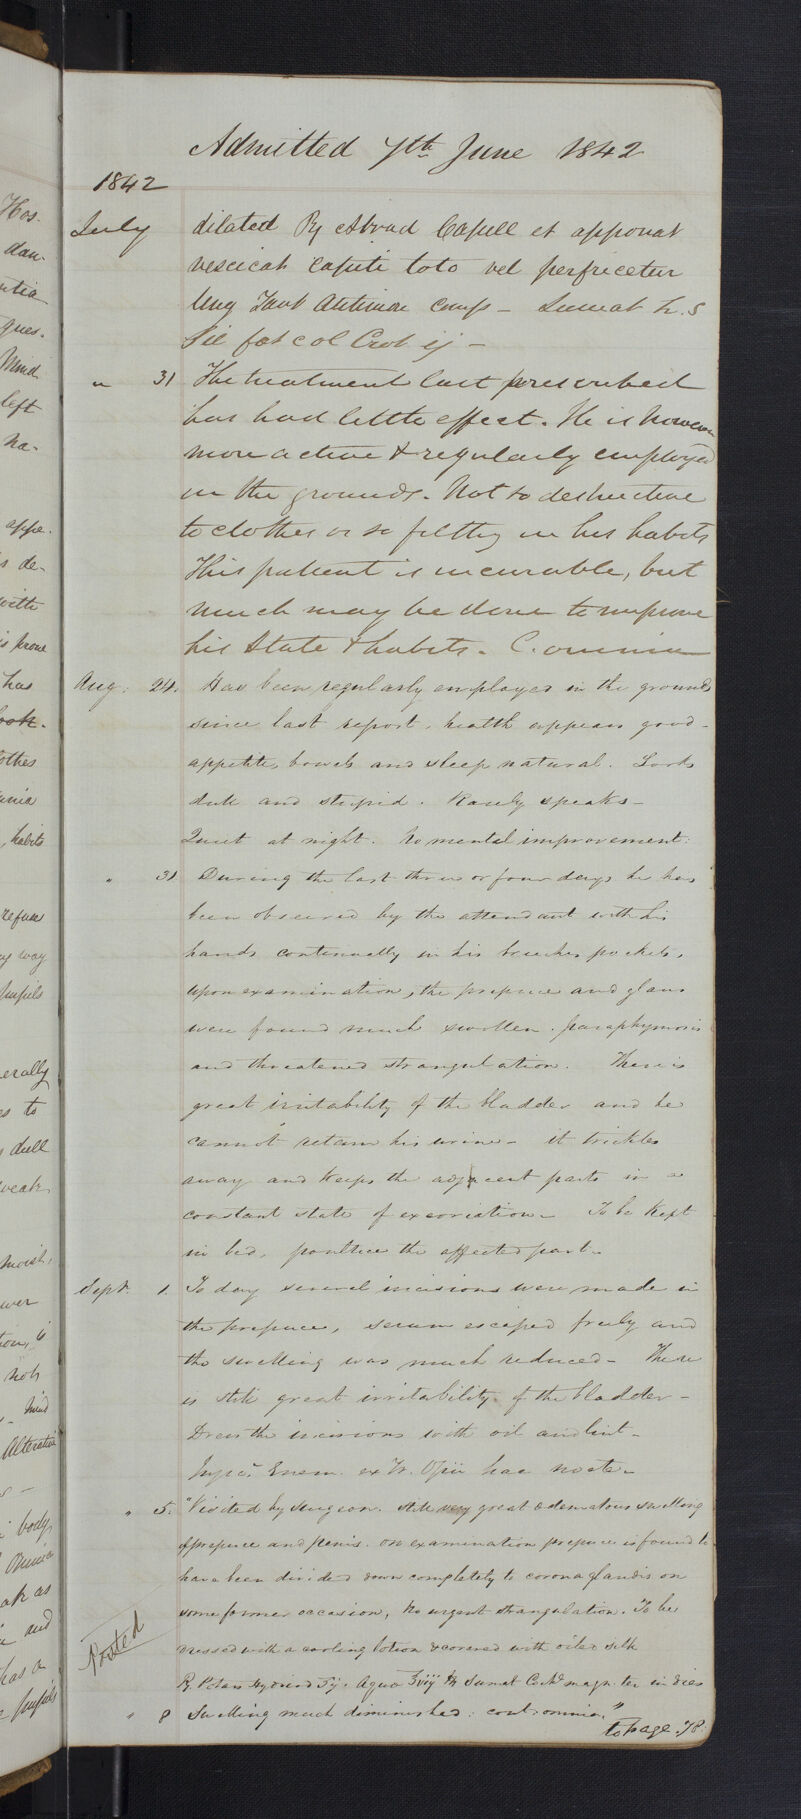 Admitted 7th June 1842
1842
July dilated Rx Abrad Capill et apponat
vesicat capiti toto vel perfricetur
Ung Tart Antimon comp - Sumat h.s
Pil col Crot ij -
" 31 The treatment last prescribed
has had little effect. He is however
more active & regularly employed
in the grounds. Not so destructive
to clothes or so filthy in his habits
This patient is incurable, but
much may be done to improve
his state & habits. C. omnia
Aug: 24. Has been regularly employed in the grounds
since last report, health appears good -
appetite, bowels and sleep natural. Looks
dull and stupid. Rarely speaks -
Quiet at night. No mental improvement.
" 31 During the last three or four days he has
been observed by the attendant with his
hands continually in his breeches pockets,
upon examination, the prepuce and glans
were found much swollen. paraphymosis
and threatened strangulation. There is
great irritability of the bladder and he
cannot retain his urine - it trickles
away and keeps the adjacent parts in a
constant state of excoriation - To be kept
in bed, poultice the affected part -
Sept. 1. To day several incisions were made in
the prepuce, serum escaped freely and
the swelling was much reduced - There
is still great irritability of the bladder -
Dress the incisions with oil and lint -
Enem. ex Tr. Opii hac nocte -
" 5. "Visited by surgeon. still very great oedematous swelling
of prepuce and penis. on examination prepuce is found to
have been divided down completely to corona glandis on
some former occasion, No urgent strangulation. To be
dressed with a cooling lotion & covered with oiled silk
Posted
Rx Potass Hydriod Aqua Sumat Coch magn. ter in dies
" 8 Swelling much diminished: cont omnia."
to page 78.
Hos-
dan-
ques-
Mind
left
na-
appe-
s de-
with
is prone
has
othes
habits
refuse
way
pupils
erally
to
dull
weak
moist,
wer
not
mind
Alterative
body
ak as
and
has a
pupils